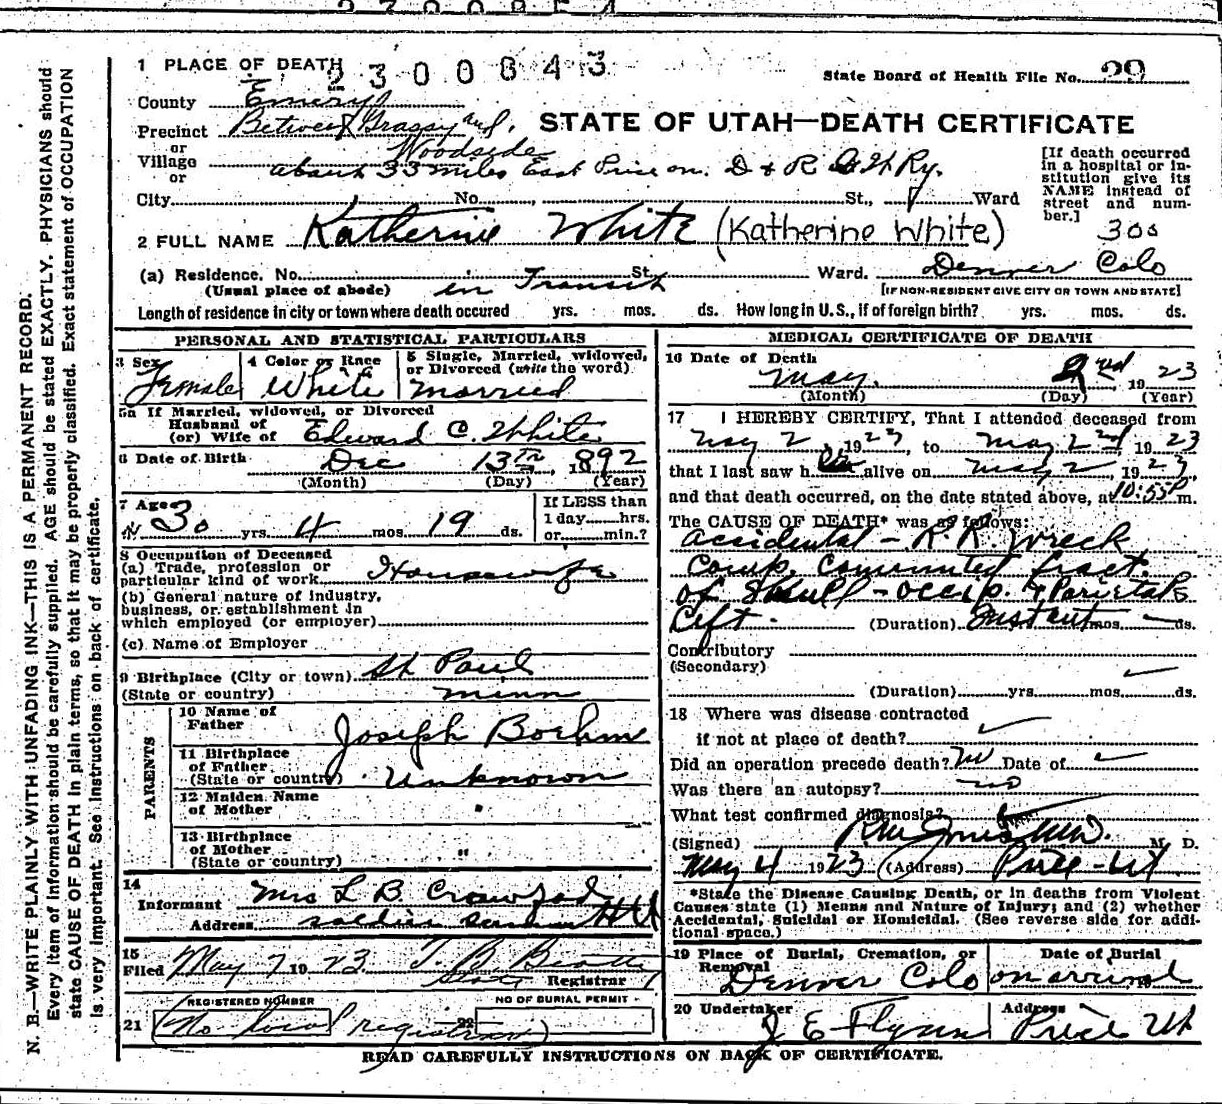 2300843
1 PLACE OF DEATH
State Board of Health File No. 29
County Emery
Precinct Between Grassy and
or
Village Woodside
or about 33 miles East Price on D & R G W Ry.
STATE OF UTAH—DEATH CERTIFICATE
[If death occurred in a hospital or institution give its NAME instead of street and number.]
City No. St., Ward
300
2 FULL NAME Katherine White (Katherine White)
(a) Residence. No. in Transit St. Ward. Denver Colo
(Usual place of abode) [IF NON-RESIDENT GIVE CITY OR TOWN AND STATE]
Length of residence in city or town where death occured yrs. mos. ds. How long in U. S., if of foreign birth? yrs. mos. ds.
PERSONAL AND STATISTICAL PARTICULARS
3 Sex Female
4 Color or Race White
5 Single, Married, widowed, or Divorced (write the word) Married
5a If Married, widowed, or Divorced
Husband of
(or) Wife of Edward C. White
6 Date of Birth Dec 13th, 1892
(Month) (Day) (Year)
7 Age 30 yrs. 4 mos. 19 ds.
If LESS than
1 day hrs.
or min.?
8 Occupation of Deceased
(a) Trade, profession or
particular kind of work Housewife
(b) General nature of industry,
business, or establishment in
which employed (or employer)
(c) Name of Employer
9 Birthplace (City or town) St Paul
(State or country) Minn
PARENTS
10 Name of Father Joseph Boehm
11 Birthplace of Father
(State or country) Unknown
12 Maiden Name of Mother "
13 Birthplace of Mother
(State or country) "
14
Informant Mrs L B Crawford
Address
15
Filed May 7 1923 T. B. Beatty
State Registrar
REGISTERED NUMBER
NO OF BURIAL PERMIT
21 (No local registrar)
22
MEDICAL CERTIFICATE OF DEATH
16 Date of Death
May 2nd 1923
(Month) (Day) (Year)
17 I HEREBY CERTIFY, That I attended deceased from
May 2, 1923, to May 2nd, 1923
that I last saw her alive on May 2, 1923
and that death occurred, on the date stated above, at 10:55P m.
The CAUSE OF DEATH* was as follows:
Accidental - R.R. Wreck
Comp. Comminuted fract.
of Skull - Occip. & Parietals
Left. (Duration) Instant mos. — ds.
Contributory
(Secondary)
(Duration) yrs. mos. ds.
18 Where was disease contracted
if not at place of death?
Did an operation precede death? No Date of
Was there an autopsy? no
What test confirmed diagnosis?
(Signed) M. D.
May 4 1923 (Address) Price - Ut
*State the Disease Causing Death, or in deaths from Violent
Causes state (1) Means and Nature of Injury; and (2) whether
Accidental, Suicidal or Homicidal. (See reverse side for additional space.)
19 Place of Burial, Cremation, or Removal Denver Colo
Date of Burial on arrival 19
20 Undertaker J E Flynn
Address Price Ut
READ CAREFULLY INSTRUCTIONS ON BACK OF CERTIFICATE.
N. B.—WRITE PLAINLY WITH UNFADING INK—THIS IS A PERMANENT RECORD.
Every item of information should be carefully supplied. AGE should be stated EXACTLY. PHYSICIANS should
state CAUSE OF DEATH in plain terms, so that it may be properly classified. Exact statement of OCCUPATION
is very important. See instructions on back of certificate.